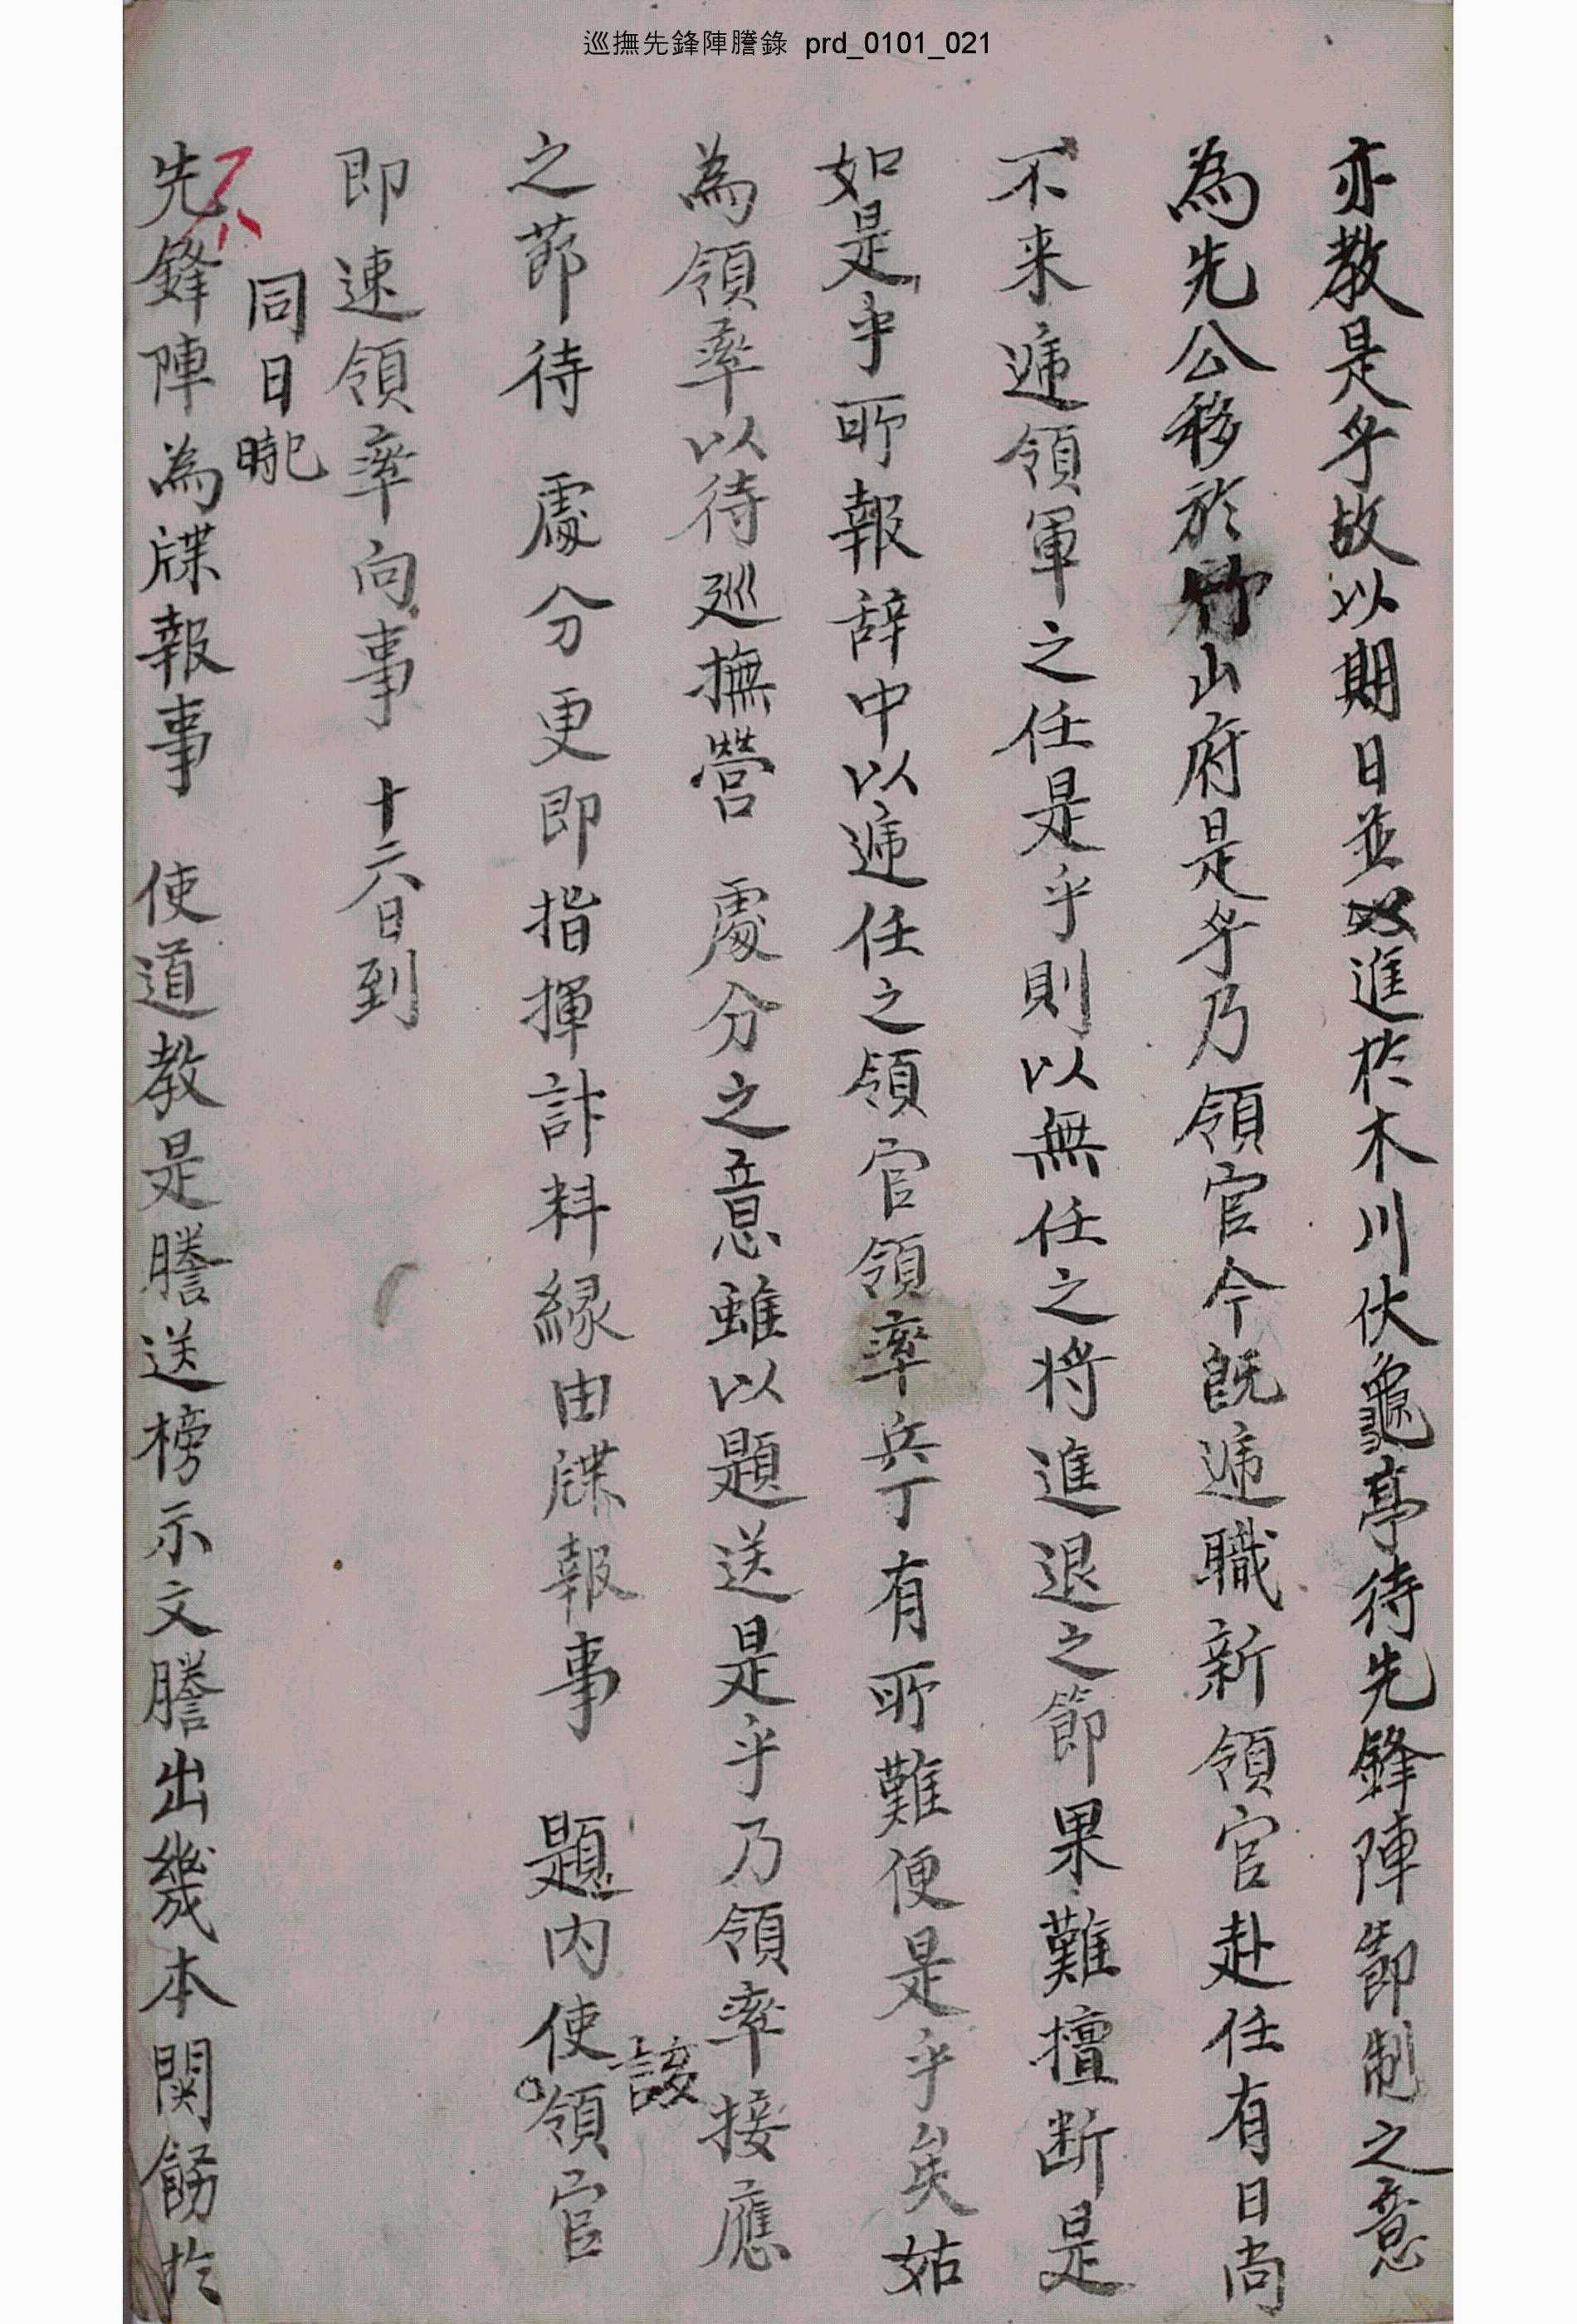 巡撫先鋒陣謄錄 prd_0101_021
亦教是乎故以期日並進於木川伏龜亭待先鋒陣節制之意
為先公移於竹山府是乎乃領官今旣遞職新領官赴任有日尚
不来遞領軍之任是乎則以無任之将進退之節果難擅断是
如是乎所報辞中以遞任之領官領率兵丁有所難便是乎矣姑
為領率以待巡撫營 處分之意雖以題送是乎乃領率接應
之莭待 處分更即指揮計料緣由牒報事 題內使該領官
即速領率向事 十六日到
同日
先鋒陣為牒報事 使道教是謄送榜示文謄出幾本関飭於